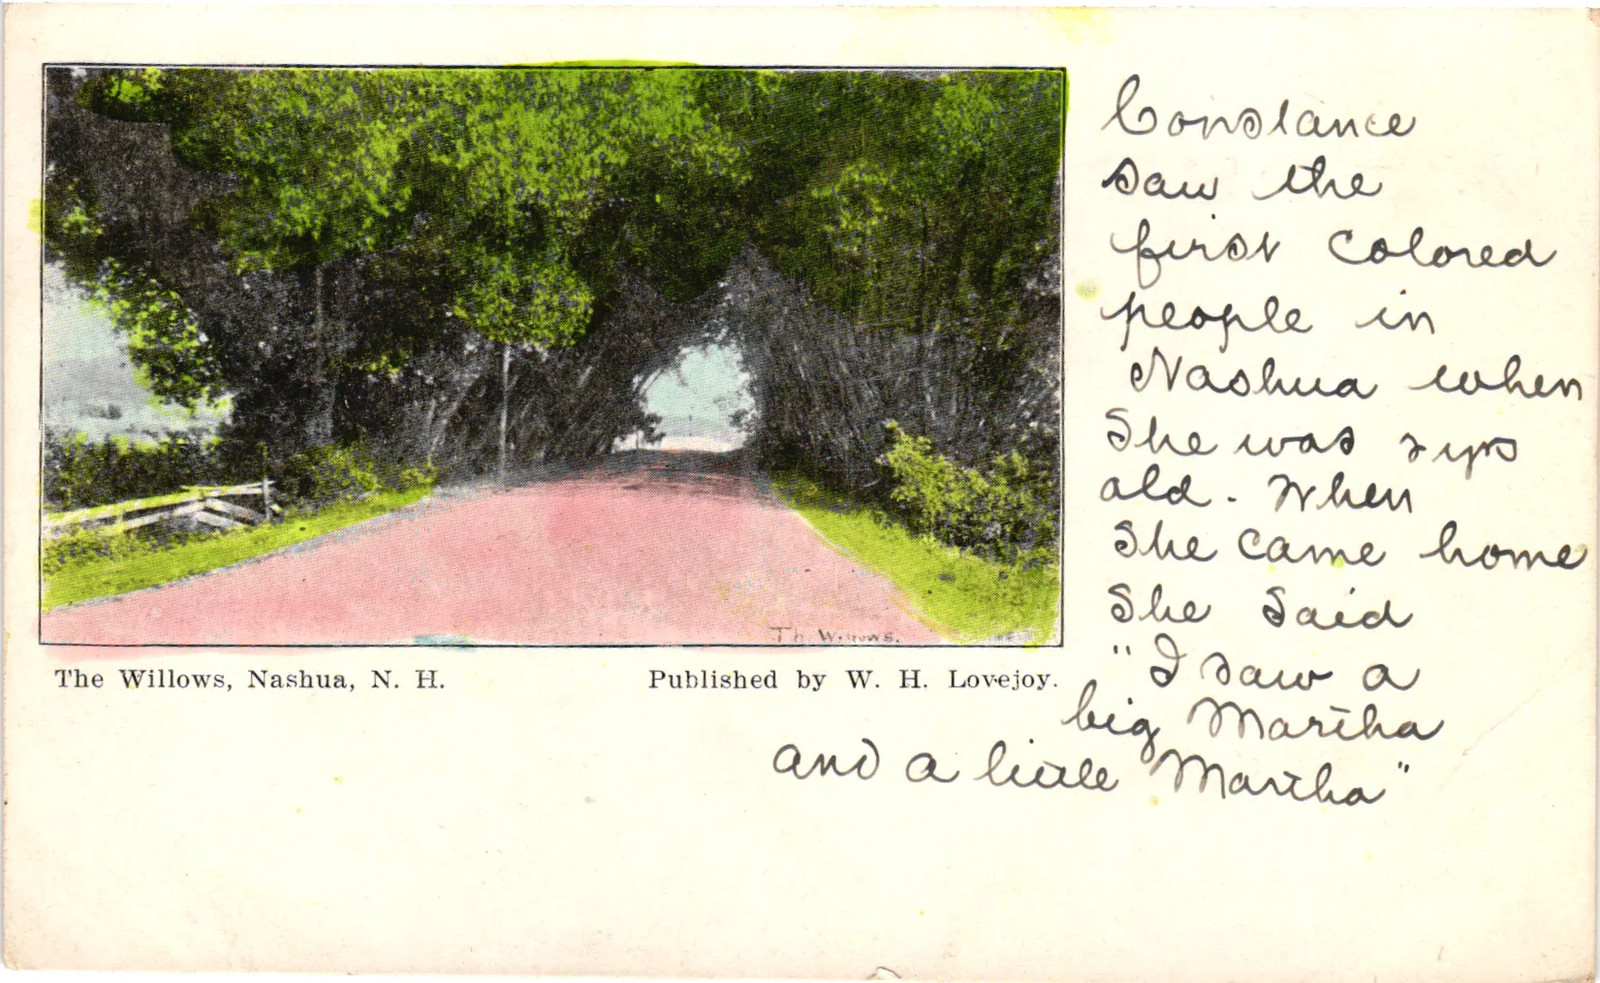 Constance
saw the
first colored
people in
Nashua when
She was 2 yrs
old. When
She came home
She said
"I saw a
big Martha
and a little Martha"
The Willows.
The Willows, Nashua, N. H.
Published by W. H. Lovejoy.